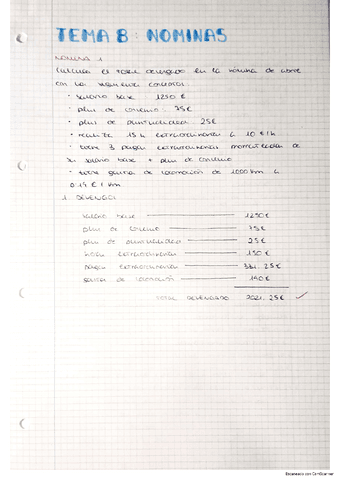 TEMA 8: NOMINAS
NOMINA 1
Calcula el total devengado en la nomina de
con los siguientes conceptos
• salario base 1250 €
• plus de convenio: 75€
• plus de puntualidad 25€
• realiza 15 h extraordinarias a 10 €/h
• tiene 3 pagas extraordinarias prorrateadas de
x salario base + plus de convenio
• tiene gastos de locomoción de 1000 km a
0'19 € / km
1. DEVENGOS
salario base 1250€
plus de convenio 75€
plus de puntualidad 25€
horas extraordinarias 150€
pagas extraordinarias 331.25€
gastos de locomoción 190€
TOTAL DEVENGADO 2021.25€ ✓
Escaneado con CamScanner